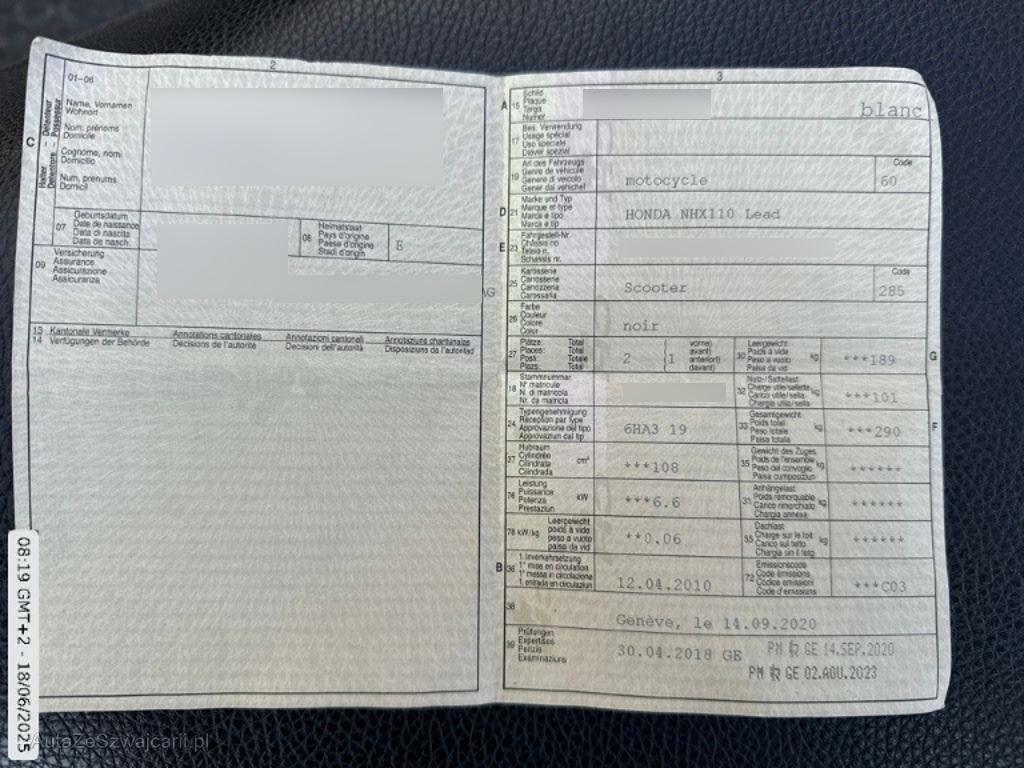 2
01-06
C
Halter - Détenteur
Detentore - Possessur
Name, Vornamen
Wohnort
Nom, prénoms
Domicile
Cognome, nomi
Domicilio
Num, prenums
Domicil
07
Geburtsdatum
Date de naissance
Data di nascita
Data da nasch.
08
Heimatstaat
Pays d'origine
Paese d'origine
Stadi d'origin
E
09
Versicherung
Assurance
Assicurazione
Assicuranza
AG
13 Kantonale Vermerke
14 Verfügungen der Behörde
Annotations cantonales
Décisions de l'autorité
Annotazioni cantonali
Decisioni dell'autorità
Annotaziuns chantunalas
Disposiziuns da l'autoritad
3
A 15
Schild
Plaque
Targa
Numer
blanc
17
Bes. Verwendung
Usage spécial
Uso speciale
Diever spezial
19
Art des Fahrzeugs
Genre de véhicule
Genere di veicolo
Gener dal vehichel
motocycle
Code
60
D 21
Marke und Typ
Marque et type
Marca e tipo
Marca e tip
HONDA NHX110 Lead
E 23
Fahrgestell-Nr.
Châssis no
Telaio n.
Schassis nr.
25
Karosserie
Carrosserie
Carrozzeria
Carossaria
Scooter
Code
285
26
Farbe
Couleur
Colore
Color
noir
27
Plätze: Total
Places: Total
Posti: Totale
Plazs: Total
2 (1
vorne)
avant)
anteriori)
davant)
30
Leergewicht
Poids à vide
Peso a vuoto
Paisa da vid
kg
***189
G
18
Stammnummer
N° matricule
N. di matricola
Nr. da matricla
32
Nutz-/Sattellast
Charge utile/sellette
Carico utile/sella
Chargia utila/sella
kg
***101
24
Typengenehmigung
Réception par type
Approvazione del tipo
Approvaziun dal tip
6HA3 19
33
Gesamtgewicht
Poids total
Peso totale
Paisa totala
kg
***290
F
37
Hubraum
Cylindrée
Cilindrata
Cilindrada
cm³
***108
35
Gewicht des Zuges
Poids de l'ensemble
Peso del convoglio
Paisa cumposiziun
kg
******
76
Leistung
Puissance
Potenza
Prestaziun
kW
***6.6
31
Anhängelast
Poids remorquable
Carico rimorchiato
Chargia annexa
kg
******
78 kW/kg
Leergewicht
poids à vide
peso a vuoto
paisa da vid
**0.06
55
Dachlast
Charge sur le toit
Carico sul tetto
Chargia sin il tetg
******
B 36
1. Inverkehrsetzung
1re mise en circulation
1a messa in circolazione
1. entrada en circulaziun
12.04.2010
72
Emissionscode
Code émissions
Codice emissioni
Code d'emissiuns
***C03
38
Genève, le 14.09.2020
39
Prüfungen
Expertises
Perizie
Examinaziuns
30.04.2018 GE
PM GE 14.SEP.2020
PM GE 02.AOU.2023
08:19 GMT+2 - 18/06/2025
AutaZeSzwajcarii.pl